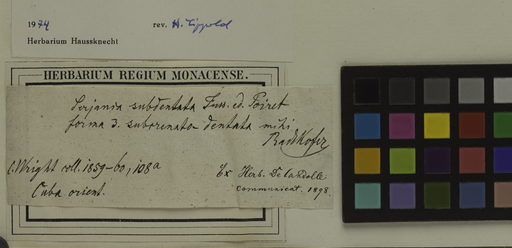 1974 rev. H. Lippold
Herbarium Haussknecht
HERBARIUM REGIUM MONACENSE.
Serjania subdentata Juss. ed. Poiret
forma 3. subcrenato-dentata mihi
Radlkofer
C. Wright coll. 1859-60, 108a
Cuba orient.
Ex Herb. De Candolle
communicat. 1898